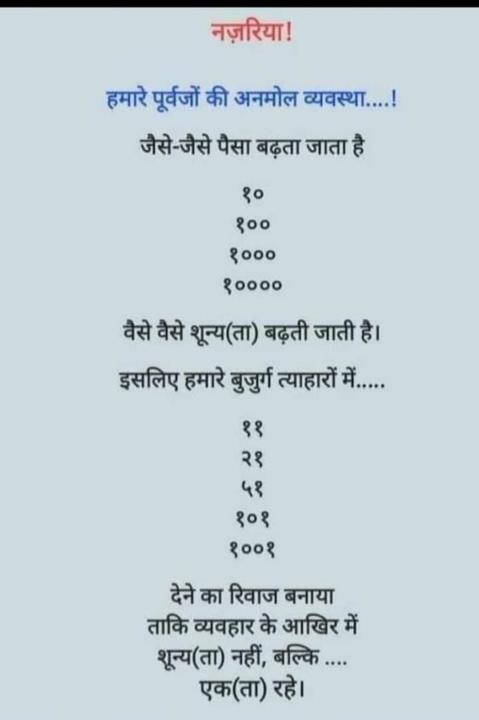 नज़रिया!
हमारे पूर्वजों की अनमोल व्यवस्था....!
जैसे-जैसे पैसा बढ़ता जाता है
१०
१००
१०००
१००००
वैसे वैसे शून्य(ता) बढ़ती जाती है।
इसलिए हमारे बुजुर्ग त्याहारों में.....
११
२१
५१
१०१
१००१
देने का रिवाज बनाया
ताकि व्यवहार के आखिर में
शून्य(ता) नहीं, बल्कि ....
एक(ता) रहे।